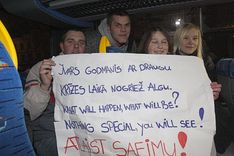 IVARS GODMANIS AR DRAUGU
KRĪZES LAIKĀ NOGRIEŽ ALGU.
WHAT WILL HAPPEN, WHAT WILL BE?
NOTHING SPECIAL, YOU WILL SEE!
ATLAIST SAEIMU!